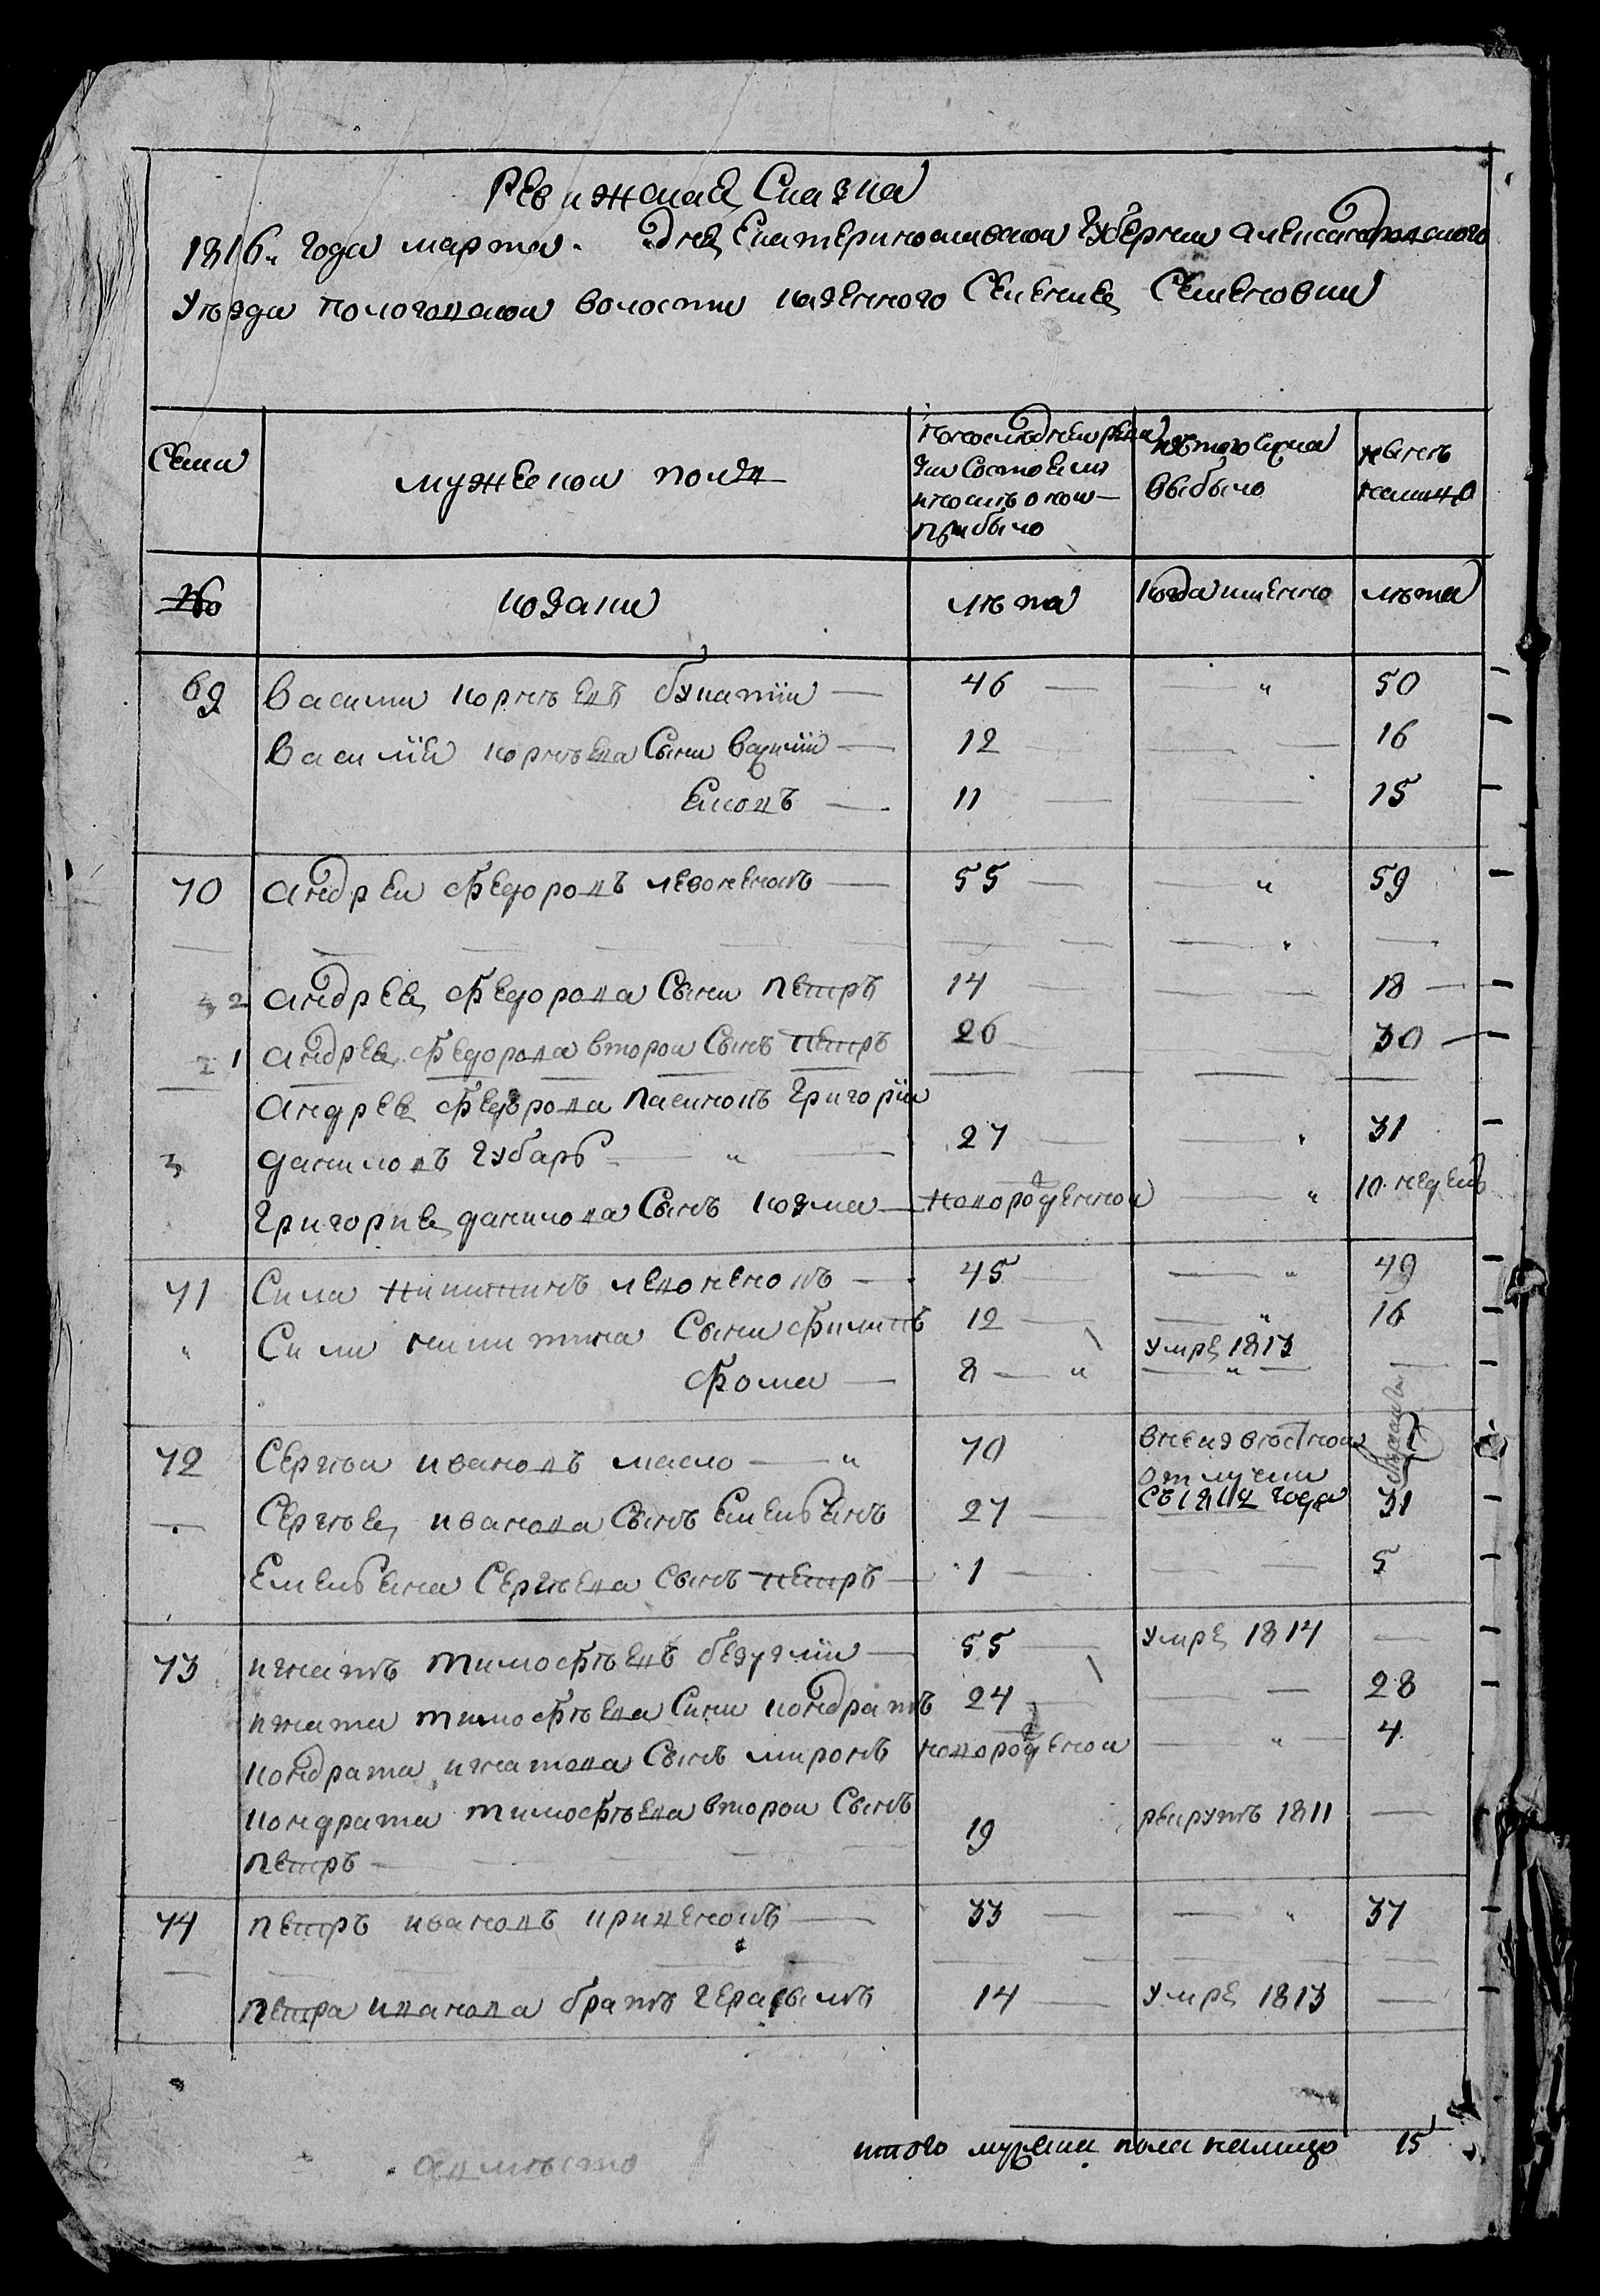 Ревижская Сказка
1816„ года марта. Дня Екатеринославской Губернии александровского
Уѣзда Пологовской волости казенного Селения Семеновки
Семи
мужеской полъ
Попоследнеи реви
зии Состояло
ипослѣ оной
прибыло
изтого числа
выбыло
нынѣ
налицо
№
козаки
лѣта
когда имянно
лѣта
69 Василий корнѣевъ букатпии 46 „ 50
Василия корнѣева Сыни Василии 12 16
Емовъ 11 15
70 андреи Федоровъ левоненокъ 55 „ 59
2 андрея Федорова Сыни петръ 14 18
1 андрея Федорова второи Сынъ петръ 26 30
андрея Федорова пасинокъ Григории
3 даниловъ Губарь „ 27 31
Григория данилова Сынъ козма новорожденной „ 10 недель
71 Сила никитинъ левоненокъ 45 „ 49
„ Сили никитина Сыни Филипъ 12 „ 16
Фома 8 „ умре 1813
72 Сергѣи ивановъ масло „ 70 внеизвѣстной
отлучки
Съ1812 года
Сергѣя иванова Сынъ Емельянъ 27 31
Емельяна Сергѣева сынъ петръ 1 5
73 игнатъ тимофѣевъ безуглии 55 умре 1814
игната тимофѣева Сини кондратъ 24 28
кондрата игнатова Сынъ миронъ новорожденои „ 4
кондрата тимофѣева второи Сынъ
петръ 19 рекрутъ 1811
74 петръ ивановъ кривенокъ 33 „ 37
петра иванова братъ герасымъ 14 умре 1813
итого мужеска пола налицо 15